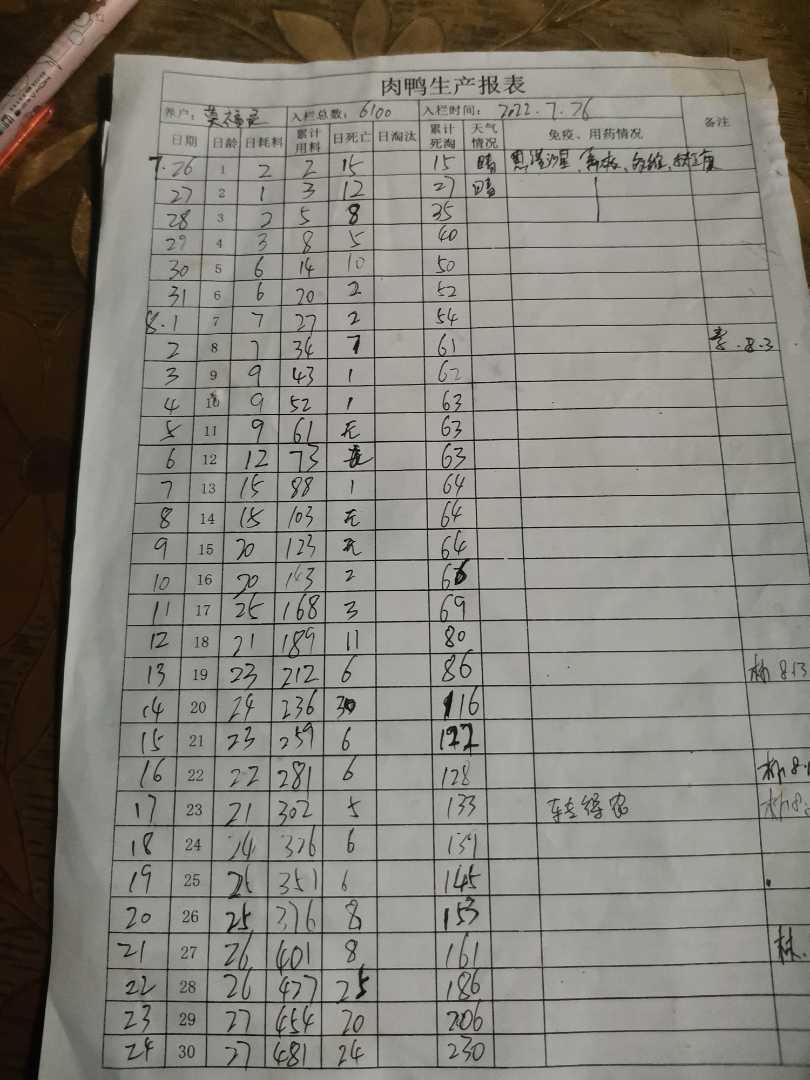 肉鸭生产报表
养户： 入栏总数：6100 入栏时间：2022.7.26 备注
日期 日龄 日耗料 累计用料 日死亡 日淘汰 累计死淘 天气情况 免疫、用药情况
7.26 1 2 2 15 15 晴
27 2 1 3 12 27 晴
28 3 2 5 8 35
29 4 3 8 5 40
30 5 6 14 10 50
31 6 6 20 2 52
8.1 7 7 27 2 54
2 8 7 34 7 61 8.3
3 9 9 43 1 62
4 10 9 52 1 63
5 11 9 61 无 63
6 12 12 73 无 63
7 13 15 88 1 64
8 14 15 103 无 64
9 15 20 123 无 64
10 16 20 143 2 66
11 17 25 168 3 69
12 18 21 189 11 80
13 19 23 212 6 86 林 8.13
14 20 24 236 30 116
15 21 23 259 6 122
16 22 22 281 6 128 林 8.
17 23 21 302 5 133 林 8.
18 24 24 326 6 139
19 25 25 351 6 145
20 26 25 376 8 153
21 27 26 401 8 161 林.
22 28 26 427 25 186
23 29 27 454 20 206
24 30 27 481 24 230